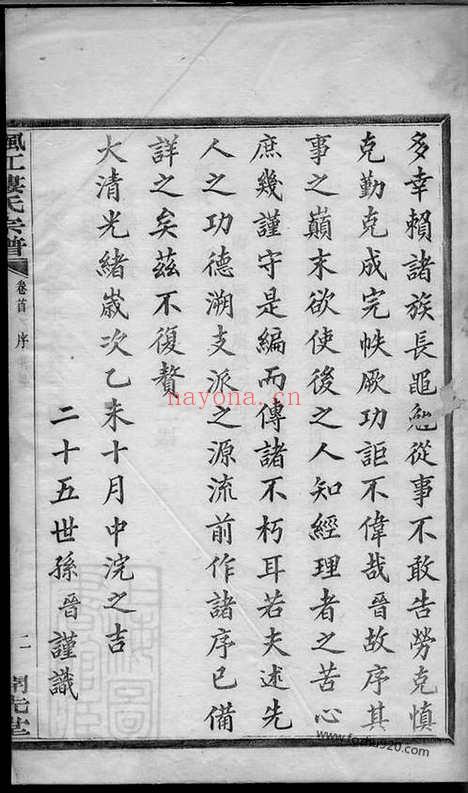 多幸賴諸族長黽勉從事不敢告勞克慎
克勤克成完帙厥功詎不偉哉晉故序其
事之巔末欲使後之人知經理者之苦心
庶幾謹守是編而傳諸不朽耳若夫述先
人之功德溯支派之源流前作諸序已備
詳之矣茲不復贅
大清光緒歲次乙未十月中浣之吉
二十五世孫晉謹識
楓江婁氏宗譜
卷首
序
二
nayona.cn
www.fozhu920.com